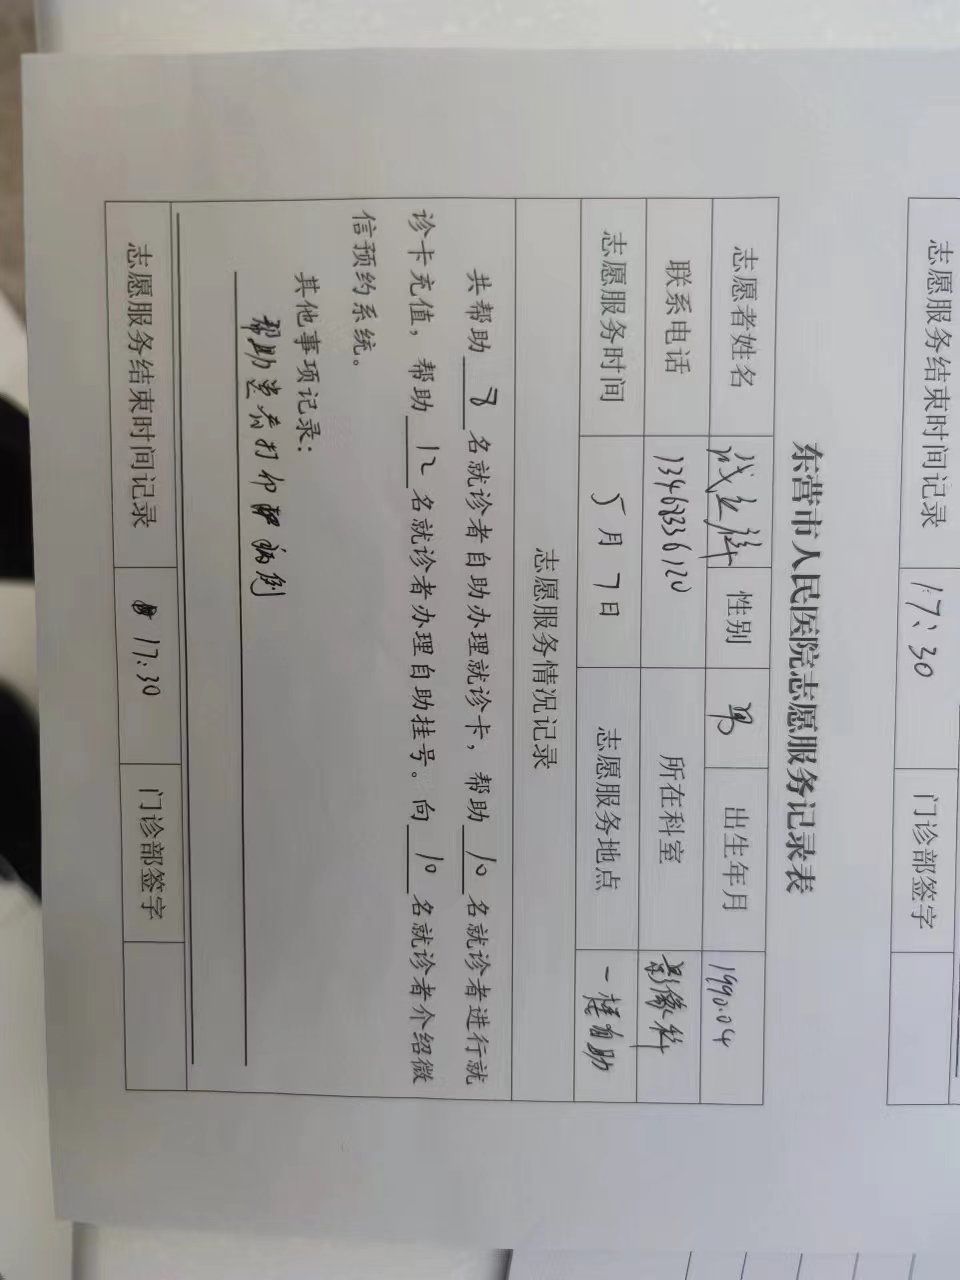 志愿服务结束时间记录 17:30 门诊部签字
东营市人民医院志愿服务记录表
志愿者姓名 性别 男 出生年月 1990.04
联系电话 所在科室 影像科
志愿服务时间 5月7日 志愿服务地点 一楼自助
志愿服务情况记录
共帮助 8 名就诊者自助办理就诊卡，帮助 10 名就诊者进行就
诊卡充值，帮助 12 名就诊者办理自助挂号。向 10 名就诊者介绍微
信预约系统。
其他事项记录：
帮助患者打印病例
志愿服务结束时间记录 17:30 门诊部签字